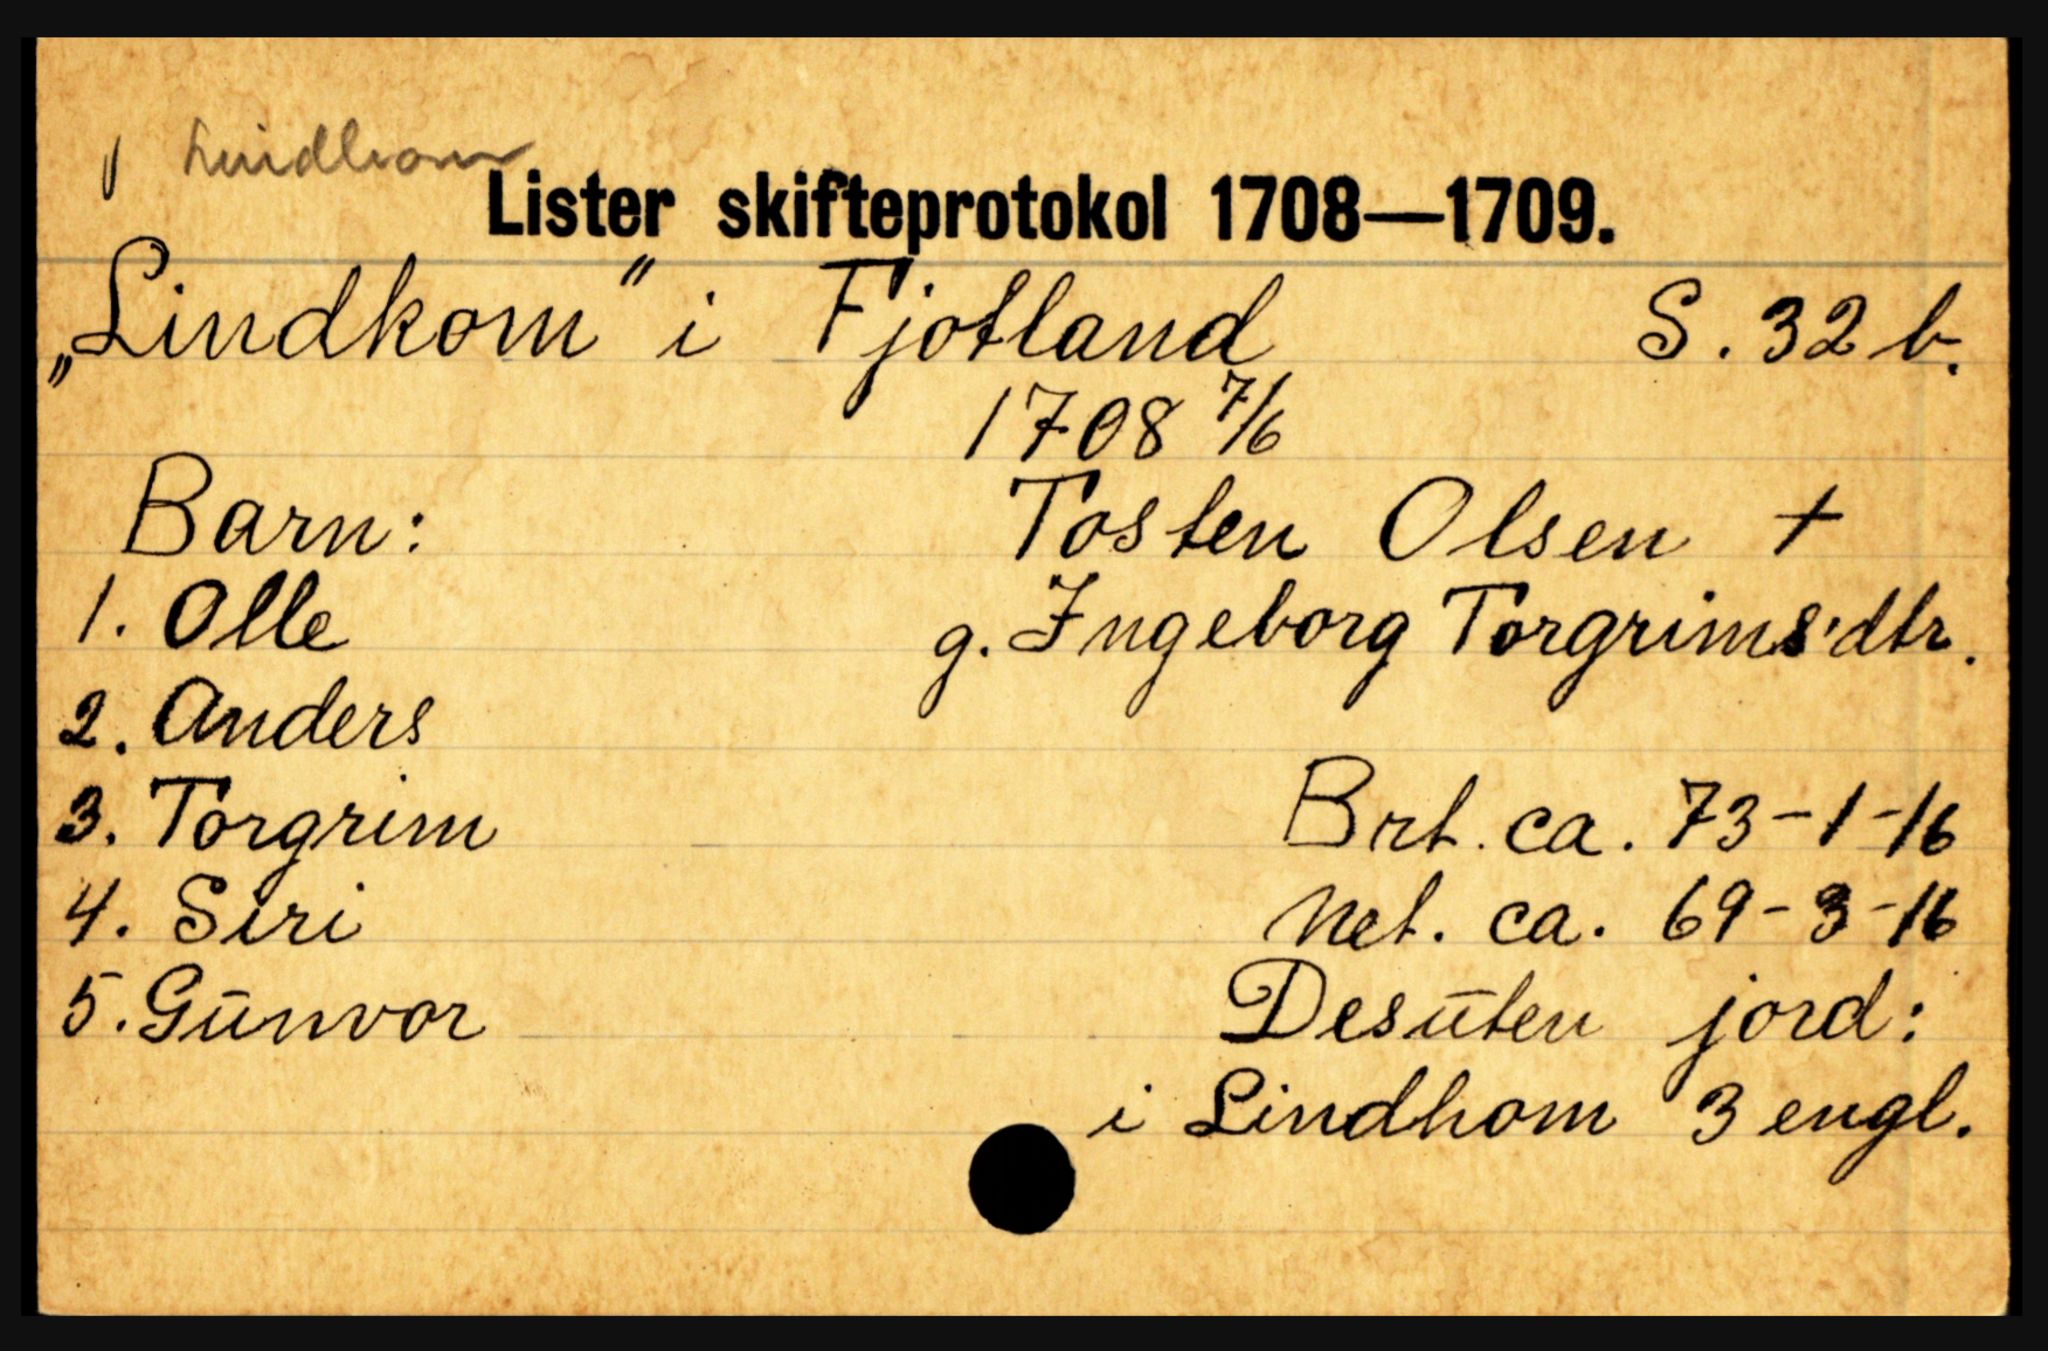 Lindhom
Lister skifteprotokol 1708—1709.
„Lindkom” i Fjotland S. 32 b.
1708 7/6
Barn: Tosten Olsen +
1. Olle g. Ingeborg Torgrims'dtr.
2. Anders
3. Torgrim Brt. ca. 73-1-16
4. Siri Net. ca. 69-3-16
5. Gūnvor Desūten jord:
i Lindhom 3 engl.